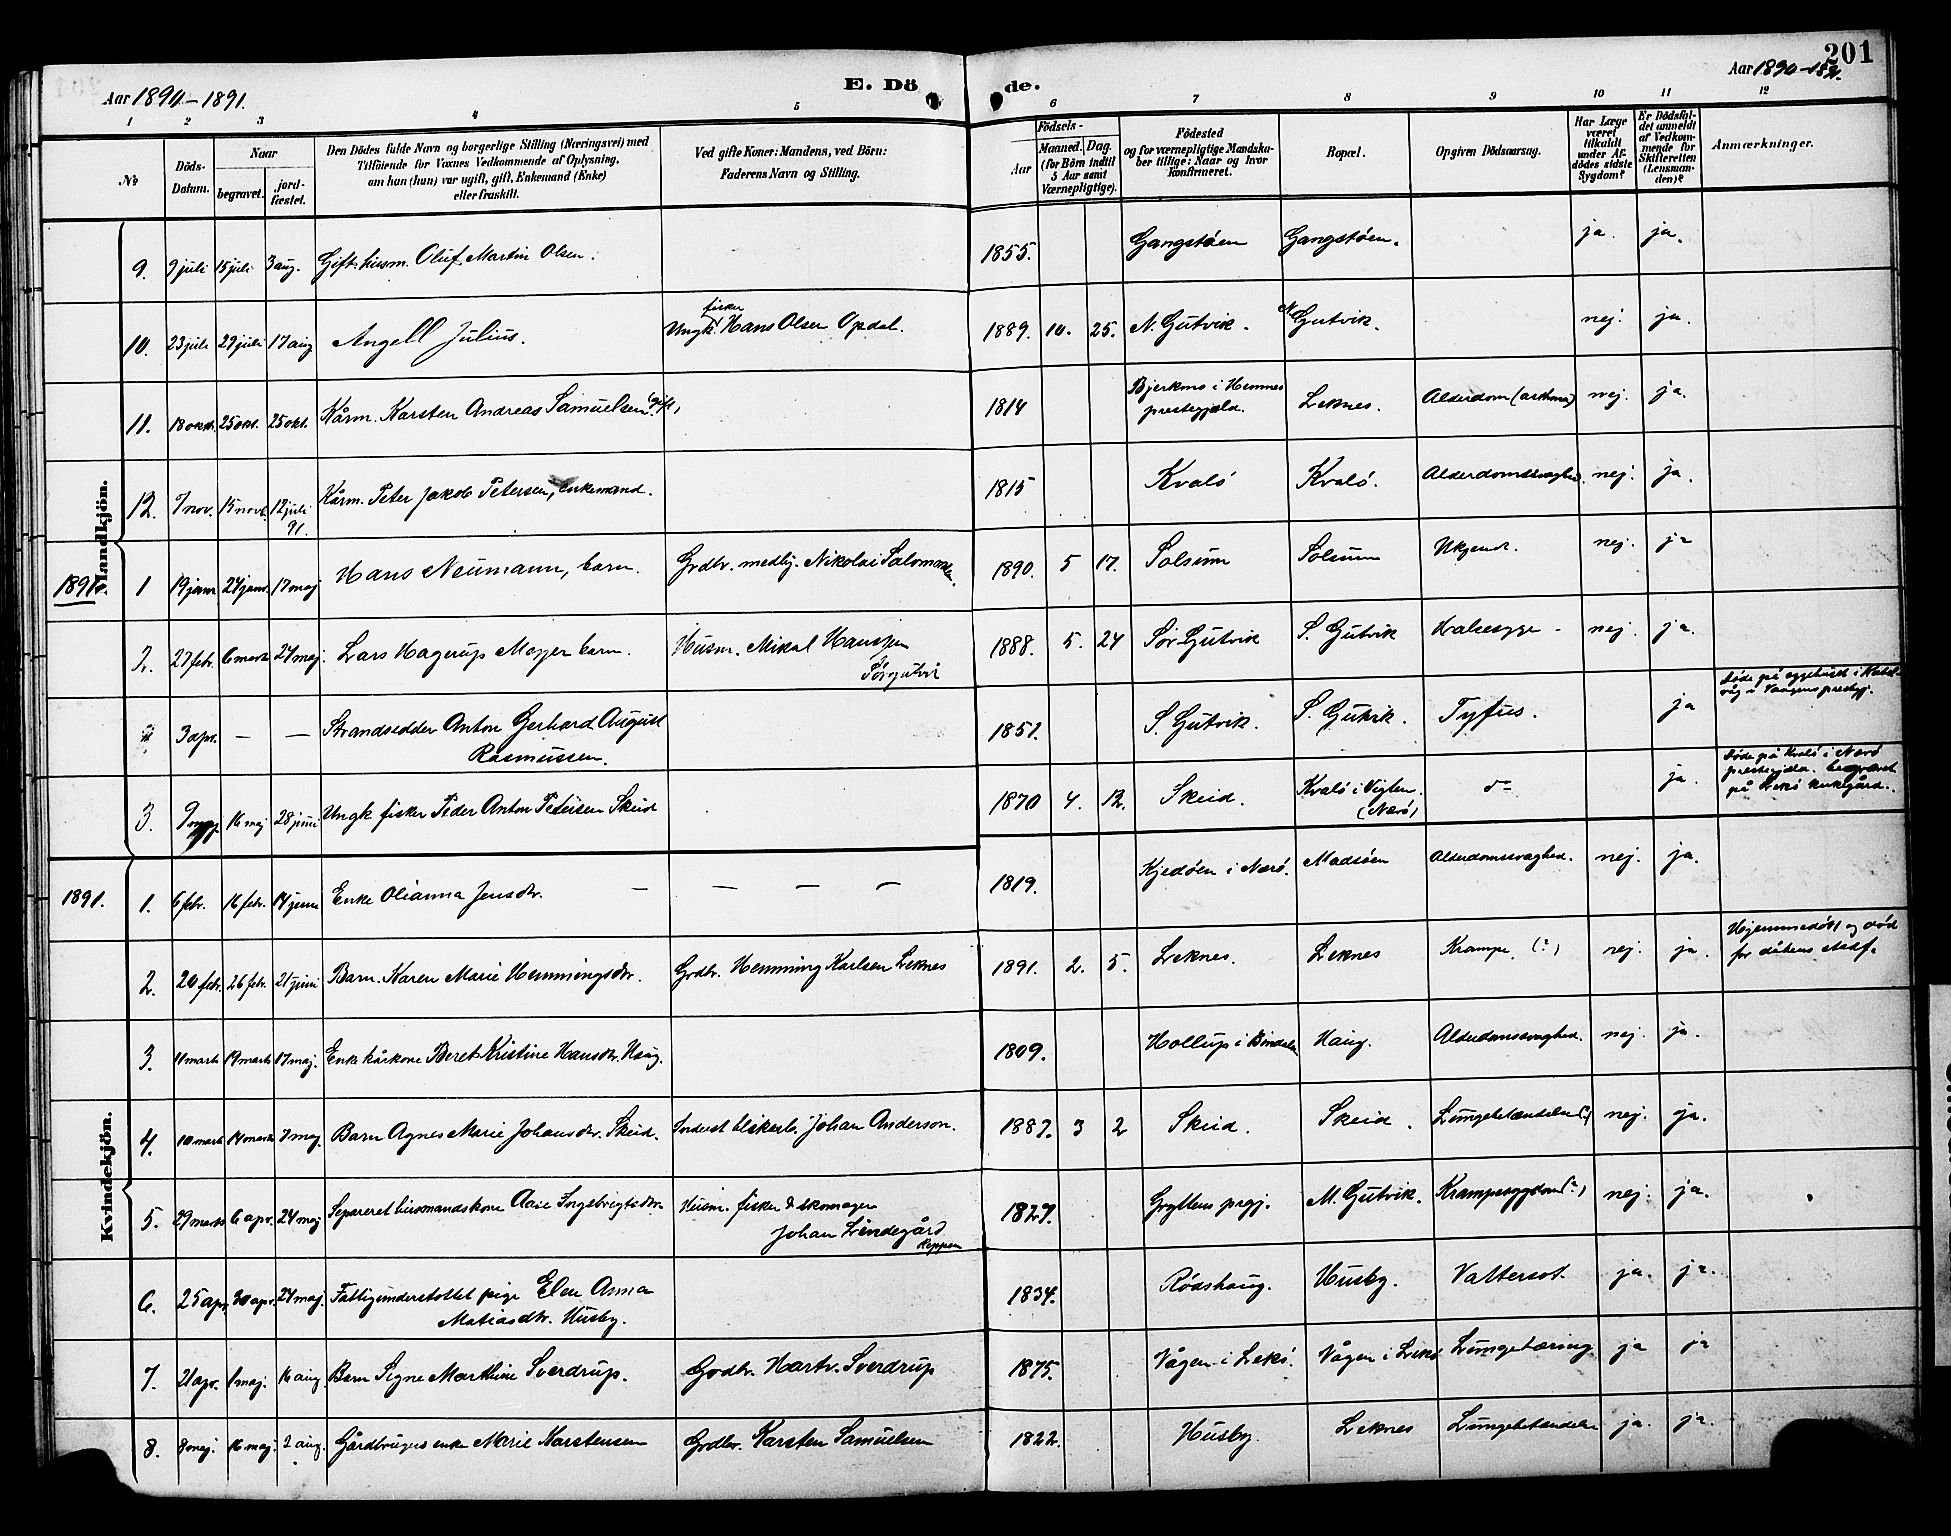 201
Aar 1890-1891.
E. Döde.
Aar 1890-1891.
1 2 3 4 5 6 7 8 9 10 11 12
№
Döds-Datum.
Naar
begravet.
jordfæstet.
Den Dödes fulde Navn og borgerlige Stilling (Næringsvei) med
Tilföiende for Voxnes Vedkommende af Oplysning,
om han (hun) var ugift, gift, Enkemand (Enke)
eller fraskilt.
Ved gifte Koner: Mandens, ved Börn:
Faderens Navn og Stilling.
Födsels-
Aar
Maaned. Dag.
(for Börn indtil
5 Aar samt
Værnepligtige).
Födested
og for værnepligtige Mandskaber tillige: Naar og hvor
konfirmeret.
Bopæl.
Opgiven Dödsaarsag.
Har Læge været tilkaldt under Afdödes sidste Sygdom?
Er Dödsfaldet anmeldt af Vedkommende for Skifteretten (Lensmanden)?
Anmærkninger.
Mandkjön.
9. 9 juli 15 juli 3 aug. Gift husm. Oluf Martin Olsen. 1855. Gangstøen Gangstøen. ja. ja.
10. 23 juli 29 juli 17 aug Angell Julius. Ungk. fisker Hans Olsen Opdal. 1889. 10. 25. N. Gutvik. N. Gutvik. nej. ja.
11. 18 okt. 25 okt. 25 okt. Kårm. Karsten Andreas Samuelsen (gift) 1814 Bjerkmo i Hemnes
prestegjæld. Leknes. Alderdom (asthma) nej. ja.
12. 7 nov. 15 novb. 12 juli
91. Kårm. Peter Jakob Petersen, enkemand. 1815 Kvalø Kvalø. Alderdomssvaghed. nej. ja.
1891 1 19 janr 24 janr. 17 maj Hans Neumann, barn. Grdbr. medhj. Nikolai Salomonsen. 1890. 5 17. Solsem Solsum Ukjendt. nej. ja
2. 27 febr. 6 marts 24 maj. Lars Hagerup Meyer barn. Husm. Mikal Hanssen
Sørgutvik 1888. 5. 24 Sør Gutvik S. Gutvik Halssyge - nej. ja.
3 apr. — — Strandsidder Anton Gerhard August
Rasmussen. 1851. S. Gutvik. S. Gutvik. Tyfus. ja Døde på sygehuset i Kabelvåg i Vaagens prestegj.
3. 9 maj 16 maj 28 juni Ungk. fisker Peder Anton Petersen Skeid 1870 4. 12. Skeid. Kvalø i Vigten.
(Nærø) do ja. Døde på Kvalø i Nærø
prestegjeld. begravet
på Lekø kirkegård.
Kvindekjön.
1891. 1. 6 febr. 16 febr. 14 juni Enke Olianna Jensdtr. — — — — 1819. Kjedøen i Nærø. Madsøen Alderdomssvaghed. nej. ja.
2. 20 febr. 26 febr. 21 juni Barn. Karen Marie Hemmingsdtr. Grdbr. Hemming Karlsen Leknes 1891. 2. 5. Leknes. Leknes Krampe. (?) nej. ja. Hjemmedøbt og død
før dåbens stadf.
3. 11 marts 19 marts 17 maj. Enke kårkone Beret Kristine Hansdtr. Haug. 1809. Hollup i Bindalen Haug. Alderdomssvaghed. nej. ja.
4. 10 marts 14 marts 7 maj. Barn Agnes Marie Johansdtr. Skeid. Inderst Johan Anderson. 1887. 3 2 Skeid. Skeid. Lungebetændelse (?) nej. ja.
5. 29 marts 6 apr. 24 maj Separeret husmandskone Ingebrigtsdtr. Husm. fisker & skomager
Johan Lindegård
1827. Gryttens prgj. M. Gutvik. Krampesygdom (?) nej. ja.
6. 25 apr. 30 apr. 24 maj. Fattigunderstøttet pige Elen Anna
Matiasdtr. Husby. 1834. Rødshaug. Husby. Vattersot. ja. ja.
7. 21 apr. 1 maj. 16 aug. Barn Signe Martine Sverdrup. Grdbr. Hartv. Sverdrup 1875. Vågen i Lekø. Vågen i Lekø Lungetæring ja ja
8. 8 maj. 16 maj. 2 aug. Gårdbruger enke Marie Karstensen Grdbr. Karsten Samuelsen 1822. Husby. Leknes Lungebetændelse ja. ja.